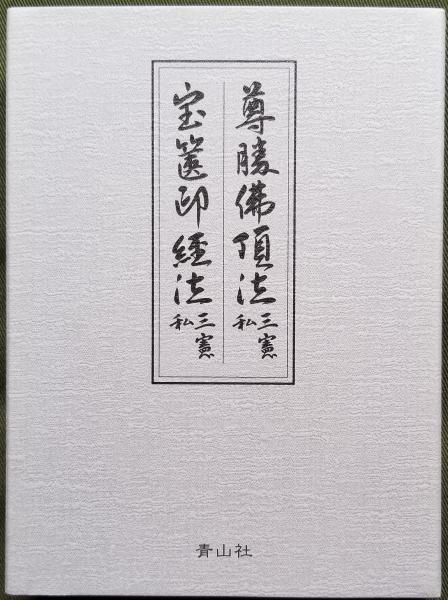 尊勝佛頂法 三憲私
宝篋印經法 三憲私
青山社